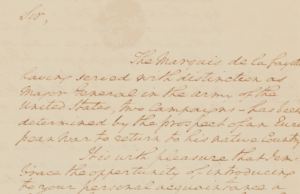 Sir,
The Marquis de la Fayette
having served with distinction as
Major General in the army of the
United States, two Campaigns – has been
determined by the prospect of an Euro
pean War to return to his native Country.
It is with pleasure that I em
brace the opportunity of introducing
to your personal acquaintance a